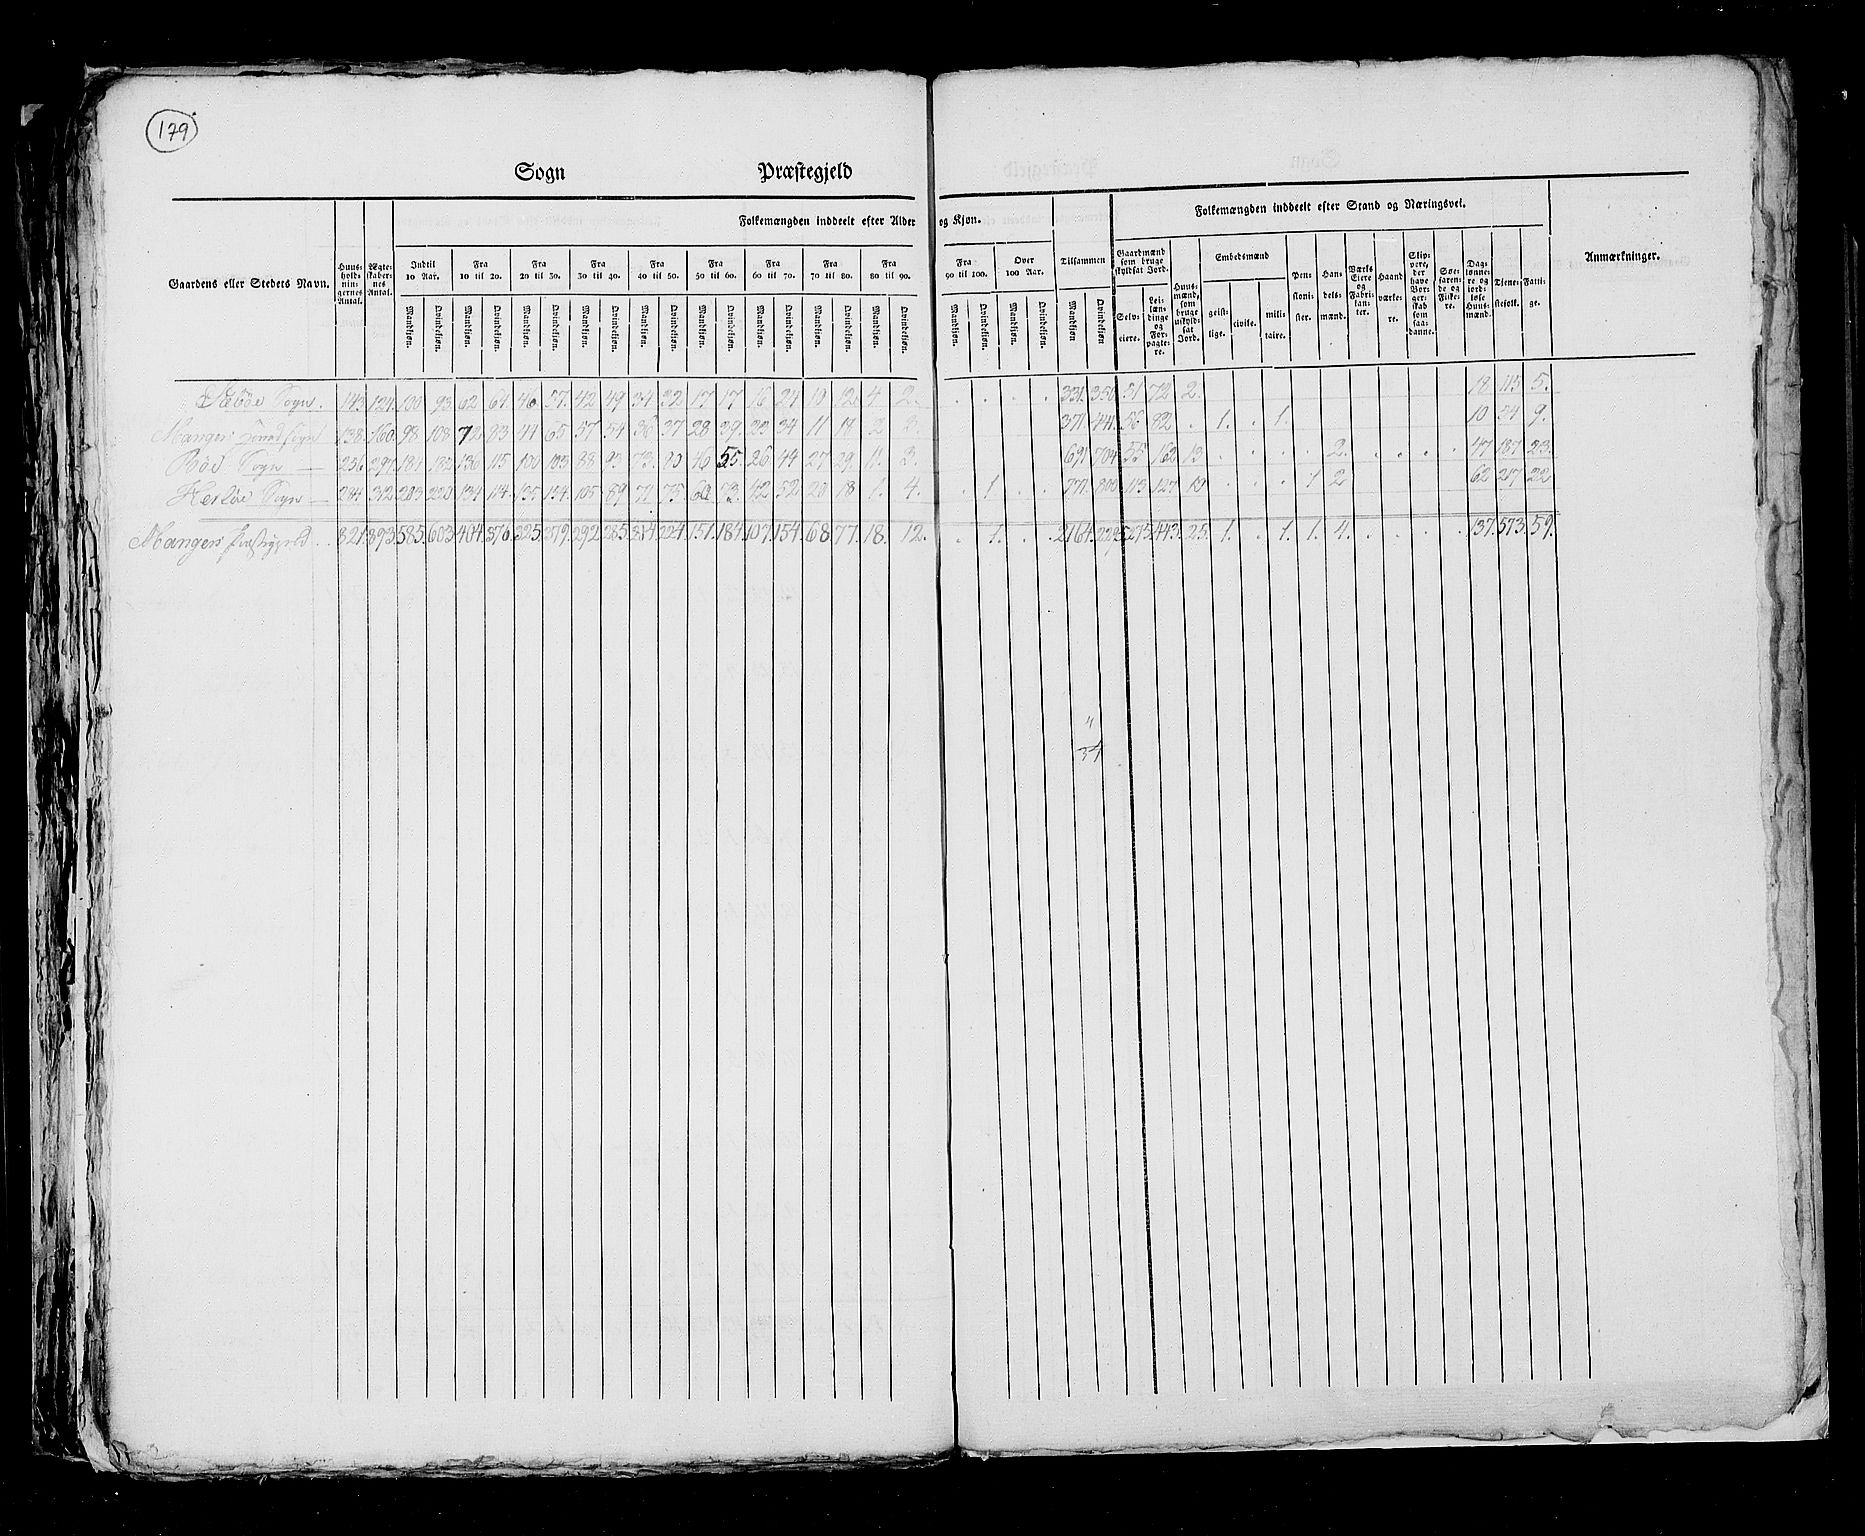 179
Sogn Præstegjeld
Gaardens eller Stedets Navn.
Huus-holdningernes Antal.
Ægteskabernes Antal.
Folkemængden inddeelt efter Alder og Kjøn.
Indtil 10 Aar. Fra 10 til 20. Fra 20 til 30. Fra 30 til 40. Fra 40 til 50. Fra 50 til 60. Fra 60 til 70. Fra 70 til 80. Fra 80 til 90. Fra 90 til 100. Over 100 Aar. Tilsammen
Mandkjøn. Qvindekjøn. Mandkjøn. Qvindekjøn. Mandkjøn. Qvindekjøn. Mandkjøn. Qvindekjøn. Mandkjøn. Qvindekjøn. Mandkjøn. Qvindekjøn. Mandkjøn. Qvindekjøn. Mandkjøn. Qvindekjøn. Mandkjøn. Qvindekjøn. Mandkjøn. Qvindekjøn. Mandkjøn. Qvindekjøn. Mandkjøn Qvindekjøn
Folkemængden inddeelt efter Stand og Næringsvei.
Gaardmænd som bruge skyldsat Jord.
Selveiere.
Leilændinge og Forpagtere.
Huusmænd, som bruge uskyldsat Jord.
Embedsmænd
geistlige. civile. militaire.
Pensionister.
Handelsmænd.
Værks Eiere og Fabrikanter.
Haandværkere.
Skippere, der have Borgerskab som saadanne.
Søefarende og Fiskere.
Dagslønnere og jordløse Huusmænd.
Tjenestefolk.
Fattige.
Anmærkninger.
Sæbøe Sogn. 143 124 100 93 62 61 46 57 42 49 34 32 17 17 16 24 10 12 4 2. 331. 350 51 72 2. 18 115 5.
Manger 138. 160. 98 108 72 83 44 65 57 54 36 37 28 39. 23 34 11 18 2 3. 371. 441. 56 82 . 1. . 1. 10 54 9.
Bøe Sogn 256. 297. 184 182 136 115 100 103 88 93 73. 80 46 55. 26. 44 27 29. 11. 3. 691 704 55 162 13 2. 47 187 23.
Herløe Sogn 284 312 203 220 134 114. 135 154. 105 89 71 75. 60 73. 42 52 20 18 1. 4. 1 771. 800 113 127 10 1 2 62 217 22
Manger Præstegjeld 821. 893. 585. 603 404. 376. 325. 379. 292. 285. 214. 224. 151. 184. 107. 154. 68. 77. 18. 12. 1. 2164. 275. 443. 25. 1. . 1. 1. 4. 137. 573. 59.
34